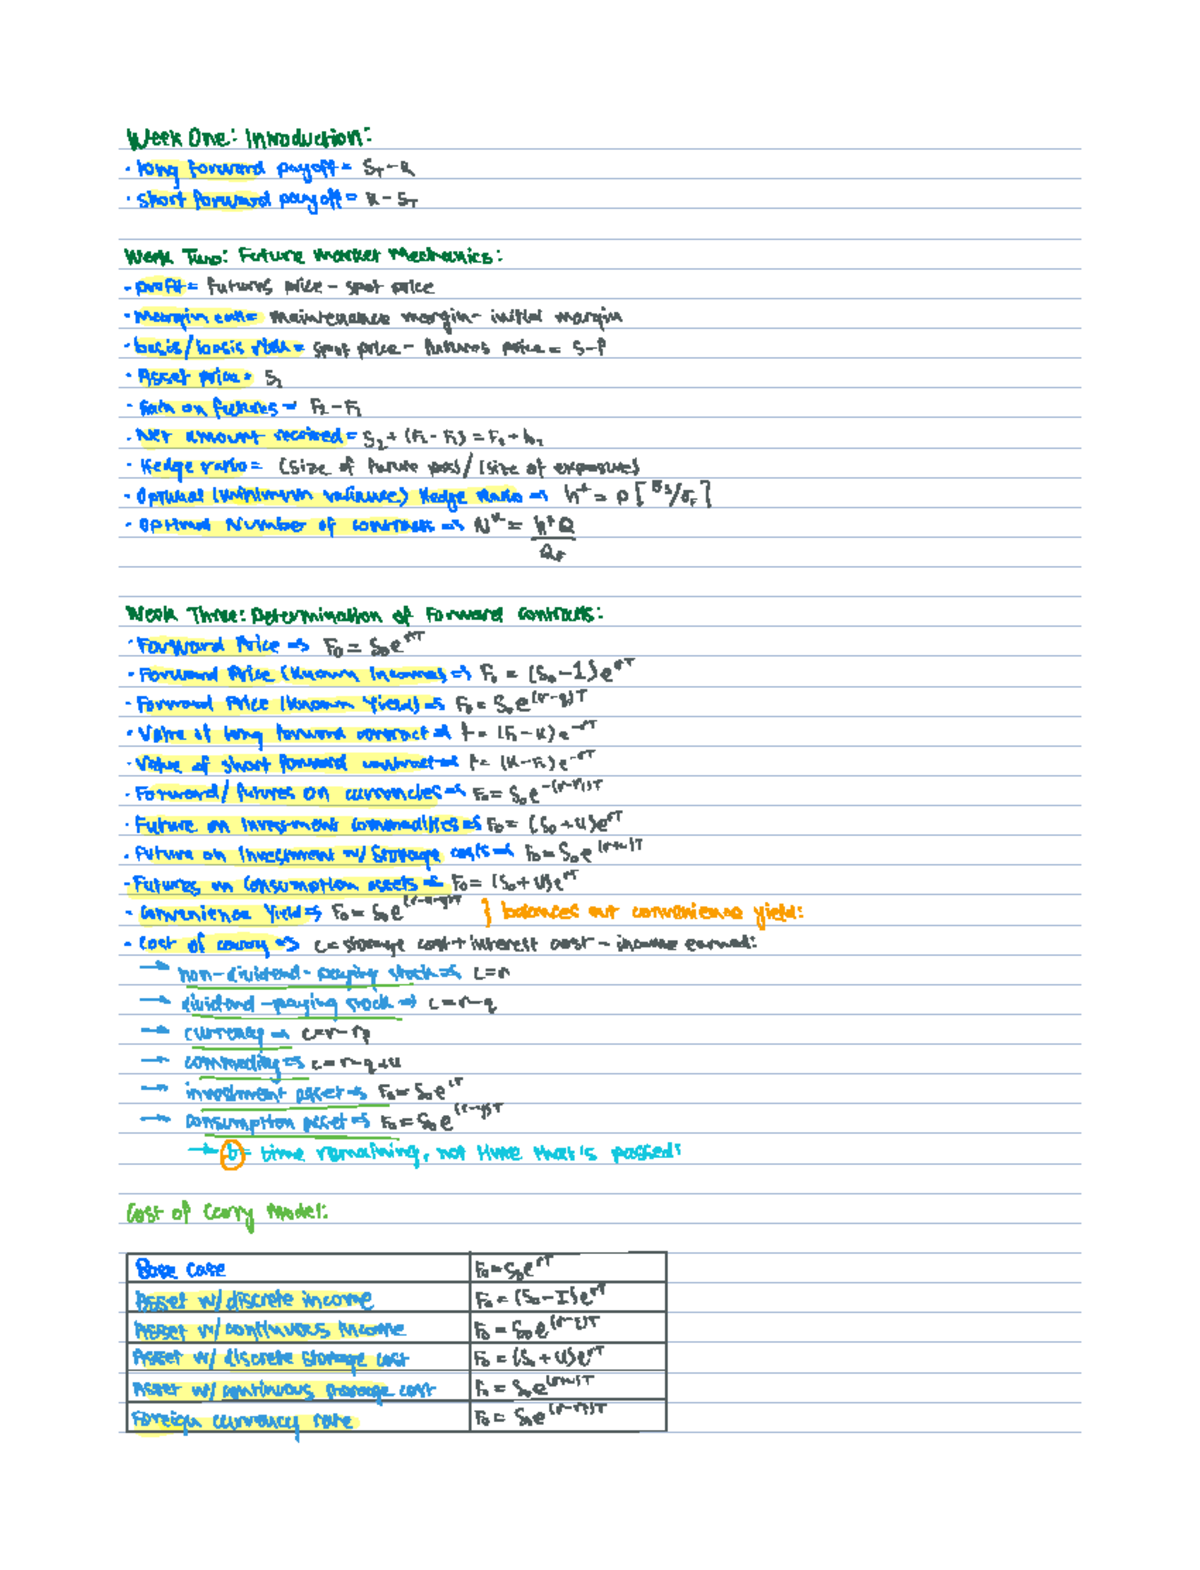 Week One: Introduction:
• long forward payoff = S_T - K
• short forward payoff = K - S_T
Week Two: Future Market Mechanics:
• profit = futures price - spot price
• Margin call = maintenance margin - initial margin
• basis/basis risk = spot price - futures price = S-F
• Asset price = S₂
• Gain on futures ⇒ F₂ - F₁
• Net amount received = S₂ + (F₁ - F₂) = F₁ + b₂
• Hedge ratio = (size of future pos)/(size of exposure)
• Optimal (minimum variance) Hedge Ratio ⇒ h* = ρ [σ_S/σ_F]
• Optimal Number of contracts ⇒ N* = h*Q / Q_F
Week Three: Determination of Forward Contracts:
• Forward Price ⇒ F₀ = S₀e^rT
• Forward Price (Known Income) ⇒ F₀ = (S₀-1)e^rT
• Forward Price (Known Yield) ⇒ F₀ = S₀e^(r-q)T
• Value of long forward contract ⇒ f = (F₀-K)e^-rT
• Value of short forward contract ⇒ f = (K-F₀)e^-rT
• Forward/futures on currencies ⇒ F₀ = S₀e^-(r-rf)T
• Future on Investment Commodities ⇒ F₀ = (S₀+U)e^rT
• Future on Investment w/ Storage costs ⇒ F₀ = S₀e^(r+u)T
• Futures on Consumption assets ⇒ F₀ = (S₀+U)e^rT
• Convenience Yield ⇒ F₀ = S₀e^(r-u-y)T } balances out convenience yield:
• Cost of carry ⇒ c = storage cost + interest cost - income earned:
→ non-dividend-paying stock ⇒ c=r
→ dividend-paying stock ⇒ c=r-q
→ currency ⇒ c=r-rf
→ commodity ⇒ c=r-q+u
→ investment asset ⇒ F₀ = S₀e^cT
→ consumption asset ⇒ F₀ = S₀e^(c-y)T
→ t = time remaining, not time that's passed!
Cost of Carry Model:
Base Case F₀ = S₀e^rT
Asset w/ discrete income F₀ = (S₀-I)e^rT
Asset w/ continuous income F₀ = S₀e^(r-q)T
Asset w/ discrete storage cost F₀ = (S₀+U)e^rT
Asset w/ continuous storage cost F₀ = S₀e^(r+u)T
Foreign currency rate F₀ = S₀e^(r-rf)T